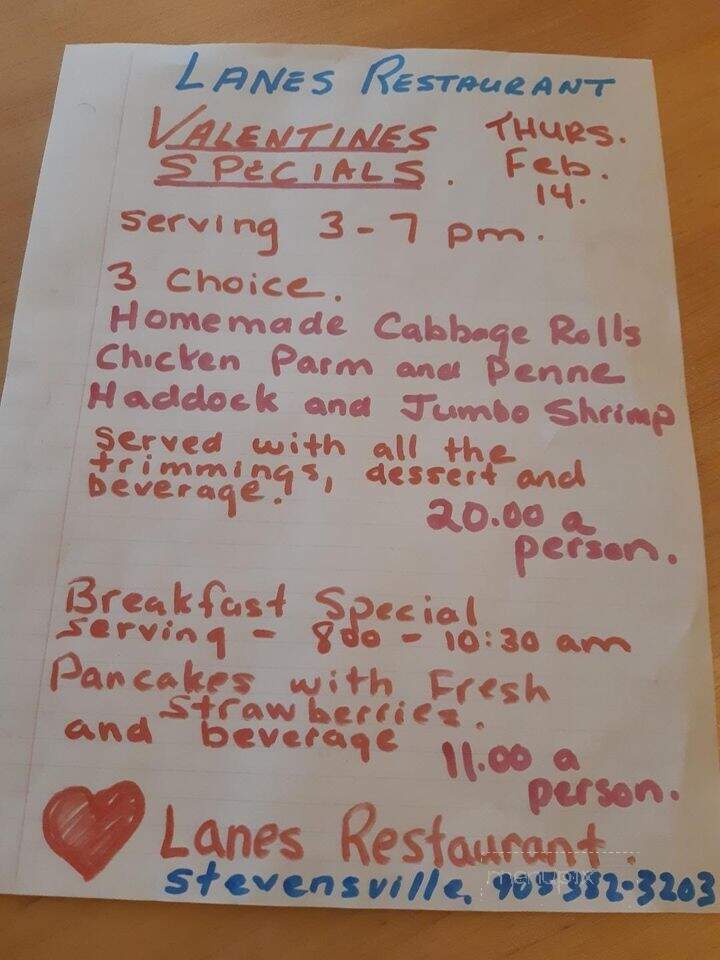 LANES RESTAURANT
VALENTINES THURS.
SPECIALS. Feb.
14.
serving 3-7 pm.
3 Choice.
Homemade Cabbage Rolls
Chicken Parm and Penne
Haddock and Jumbo Shrimp
served with all the
trimmings, dessert and
beverage.
20.00 a
person.
Breakfast Special
serving - 800 - 10:30 am
Pancakes with Fresh
strawberries.
and beverage
11.00 a
person.
Lanes Restaurant.
Stevensville,
menupix